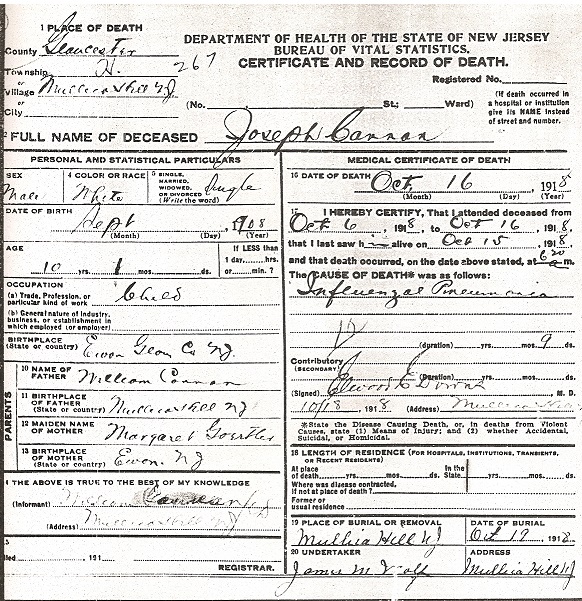 1 PLACE OF DEATH
County Gloucester
Township H. 267
or
Village Mullica Hill N.J
or
City
DEPARTMENT OF HEALTH OF THE STATE OF NEW JERSEY
BUREAU OF VITAL STATISTICS.
CERTIFICATE AND RECORD OF DEATH.
Registered No.
(No. St; Ward)
(If death occurred in
a hospital or institution
give its NAME instead
of street and number.
2 FULL NAME OF DECEASED Joseph Cannon
PERSONAL AND STATISTICAL PARTICULARS
SEX Male
4 COLOR OR RACE White
5 SINGLE,
MARRIED,
WIDOWED,
OR DIVORCED
(Write the word) Single
DATE OF BIRTH
Sept 1908
(Month) (Day) (Year)
AGE
10 yrs. 1 mos. ds.
If LESS than
1 day.....hrs.
or.....min.?
OCCUPATION
(a) Trade, Profession, or
particular kind of work Child
(b) General nature of industry,
business, or establishment in
which employed (or employer)
BIRTHPLACE
(State or country) Ewan Glou Co N.J.
PARENTS
10 NAME OF
FATHER William Cannon
11 BIRTHPLACE
OF FATHER
(State or country) Mullica Hill NJ
12 MAIDEN NAME
OF MOTHER Margaret
13 BIRTHPLACE
OF MOTHER
(State or country) Ewan. NJ
4 THE ABOVE IS TRUE TO THE BEST OF MY KNOWLEDGE
(Informant) William Cannon
(Address) Mullica Hill NJ
5
iled 191
REGISTRAR.
MEDICAL CERTIFICATE OF DEATH
16 DATE OF DEATH
Oct. 16 1918
(Month) (Day) (Year)
17 I HEREBY CERTIFY, That I attended deceased from
Oct 6 1918, to Oct 16 1918,
that I last saw him alive on Oct 15 1918,
and that death occurred, on the date above stated, at 6 20 a m.
The CAUSE OF DEATH* was as follows:
Influenzal Pneumonia
(duration) yrs. mos. 9 ds.
Contributory
(SECONDARY)
(Duration) yrs. mos. ds.
(Signed) Elwood E Downs M. D.
10/18 1918 (Address) Mullica Hill
*State the Disease Causing Death, or, in deaths from Violent
Causes, state (1) Means of Injury; and (2) whether Accidental,
Suicidal, or Homicidal.
18 LENGTH OF RESIDENCE (FOR HOSPITALS, INSTITUTIONS, TRANSIENTS,
OR RECENT RESIDENTS)
At place
of death yrs. mos. ds.
In the
State yrs. mos. ds.
Where was disease contracted,
if not at place of death?
Former or
usual residence
19 PLACE OF BURIAL OR REMOVAL
Mullica Hill NJ
DATE OF BURIAL
Oct 19 1918
20 UNDERTAKER
James M
ADDRESS
Mullica Hill NJ